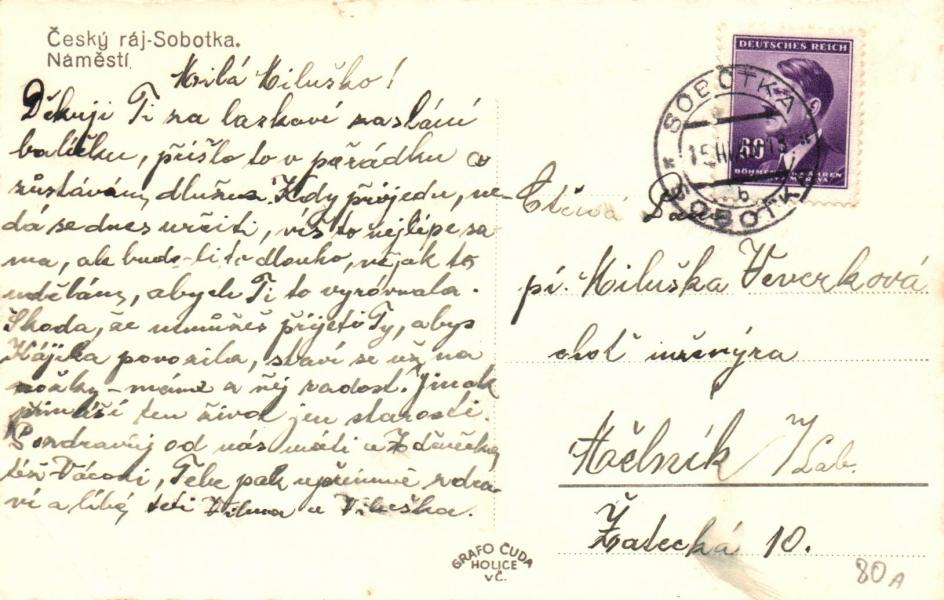 Český ráj-Sobotka.
Náměstí.
Milá Miluško!
Děkuji Ti za laskavé zaslání
balíčku, přišlo to v pořádku a
zůstávám dlužna. Kdy přijedu, ne-
dá se dnes určiti, víš to nejlépe sa-
ma, ale bude-li to dlouho, nějak to
udělám, abych Ti to vyrovnala.
Škoda, že nemůžeš přijeti Ty, abys
povozila, staví se už na
nožky - máme z něj radost. Jinak
přináší ten život jen starosti.
Pozdravuj od nás máti a Zdenečka,
též, Tebe pak upřímně zdra-
ví a líbá teti Vilma a
DEUTSCHES REICH
60
BÖHMEN UND MÄHREN
SOBOTKA
SOBOTKA
b
Ctěná
pí. Miluška Veverková
choť inženýra
Mělník / Lab.
Žatecká 10.
GRAFO ČUDA
HOLICE
V Č.
80A